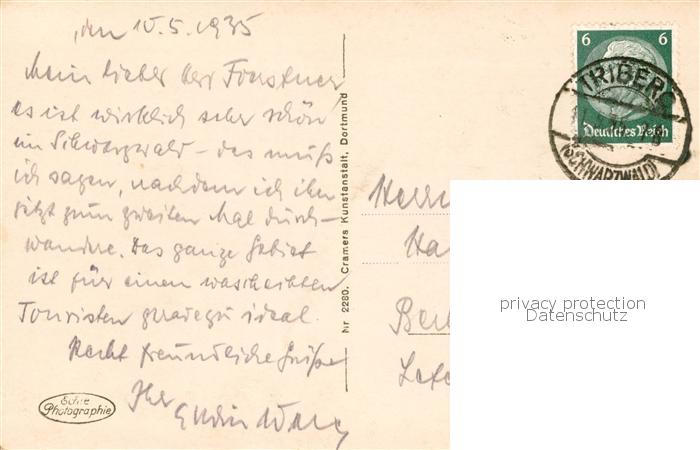 den 10.5.1935
Mein lieber Herr
es ist wirklich sehr schön
im Schwarzwald - das muß
ich sagen, nachdem ich ihn
jetzt zum zweiten Mal durch-
wandere. Das ganze Gebiet
ist für einen waschechten
Touristen geradezu ideal.
Recht freundliche Grüße
Ihr
Echte
Photographie
Nr 2280. Cramers Kunstanstalt, Dortmund
6 6
Deutsches Reich
TRIBERG
(SCHWARZWALD)
Herrn
Ha
Be
privacy protection
Datenschutz